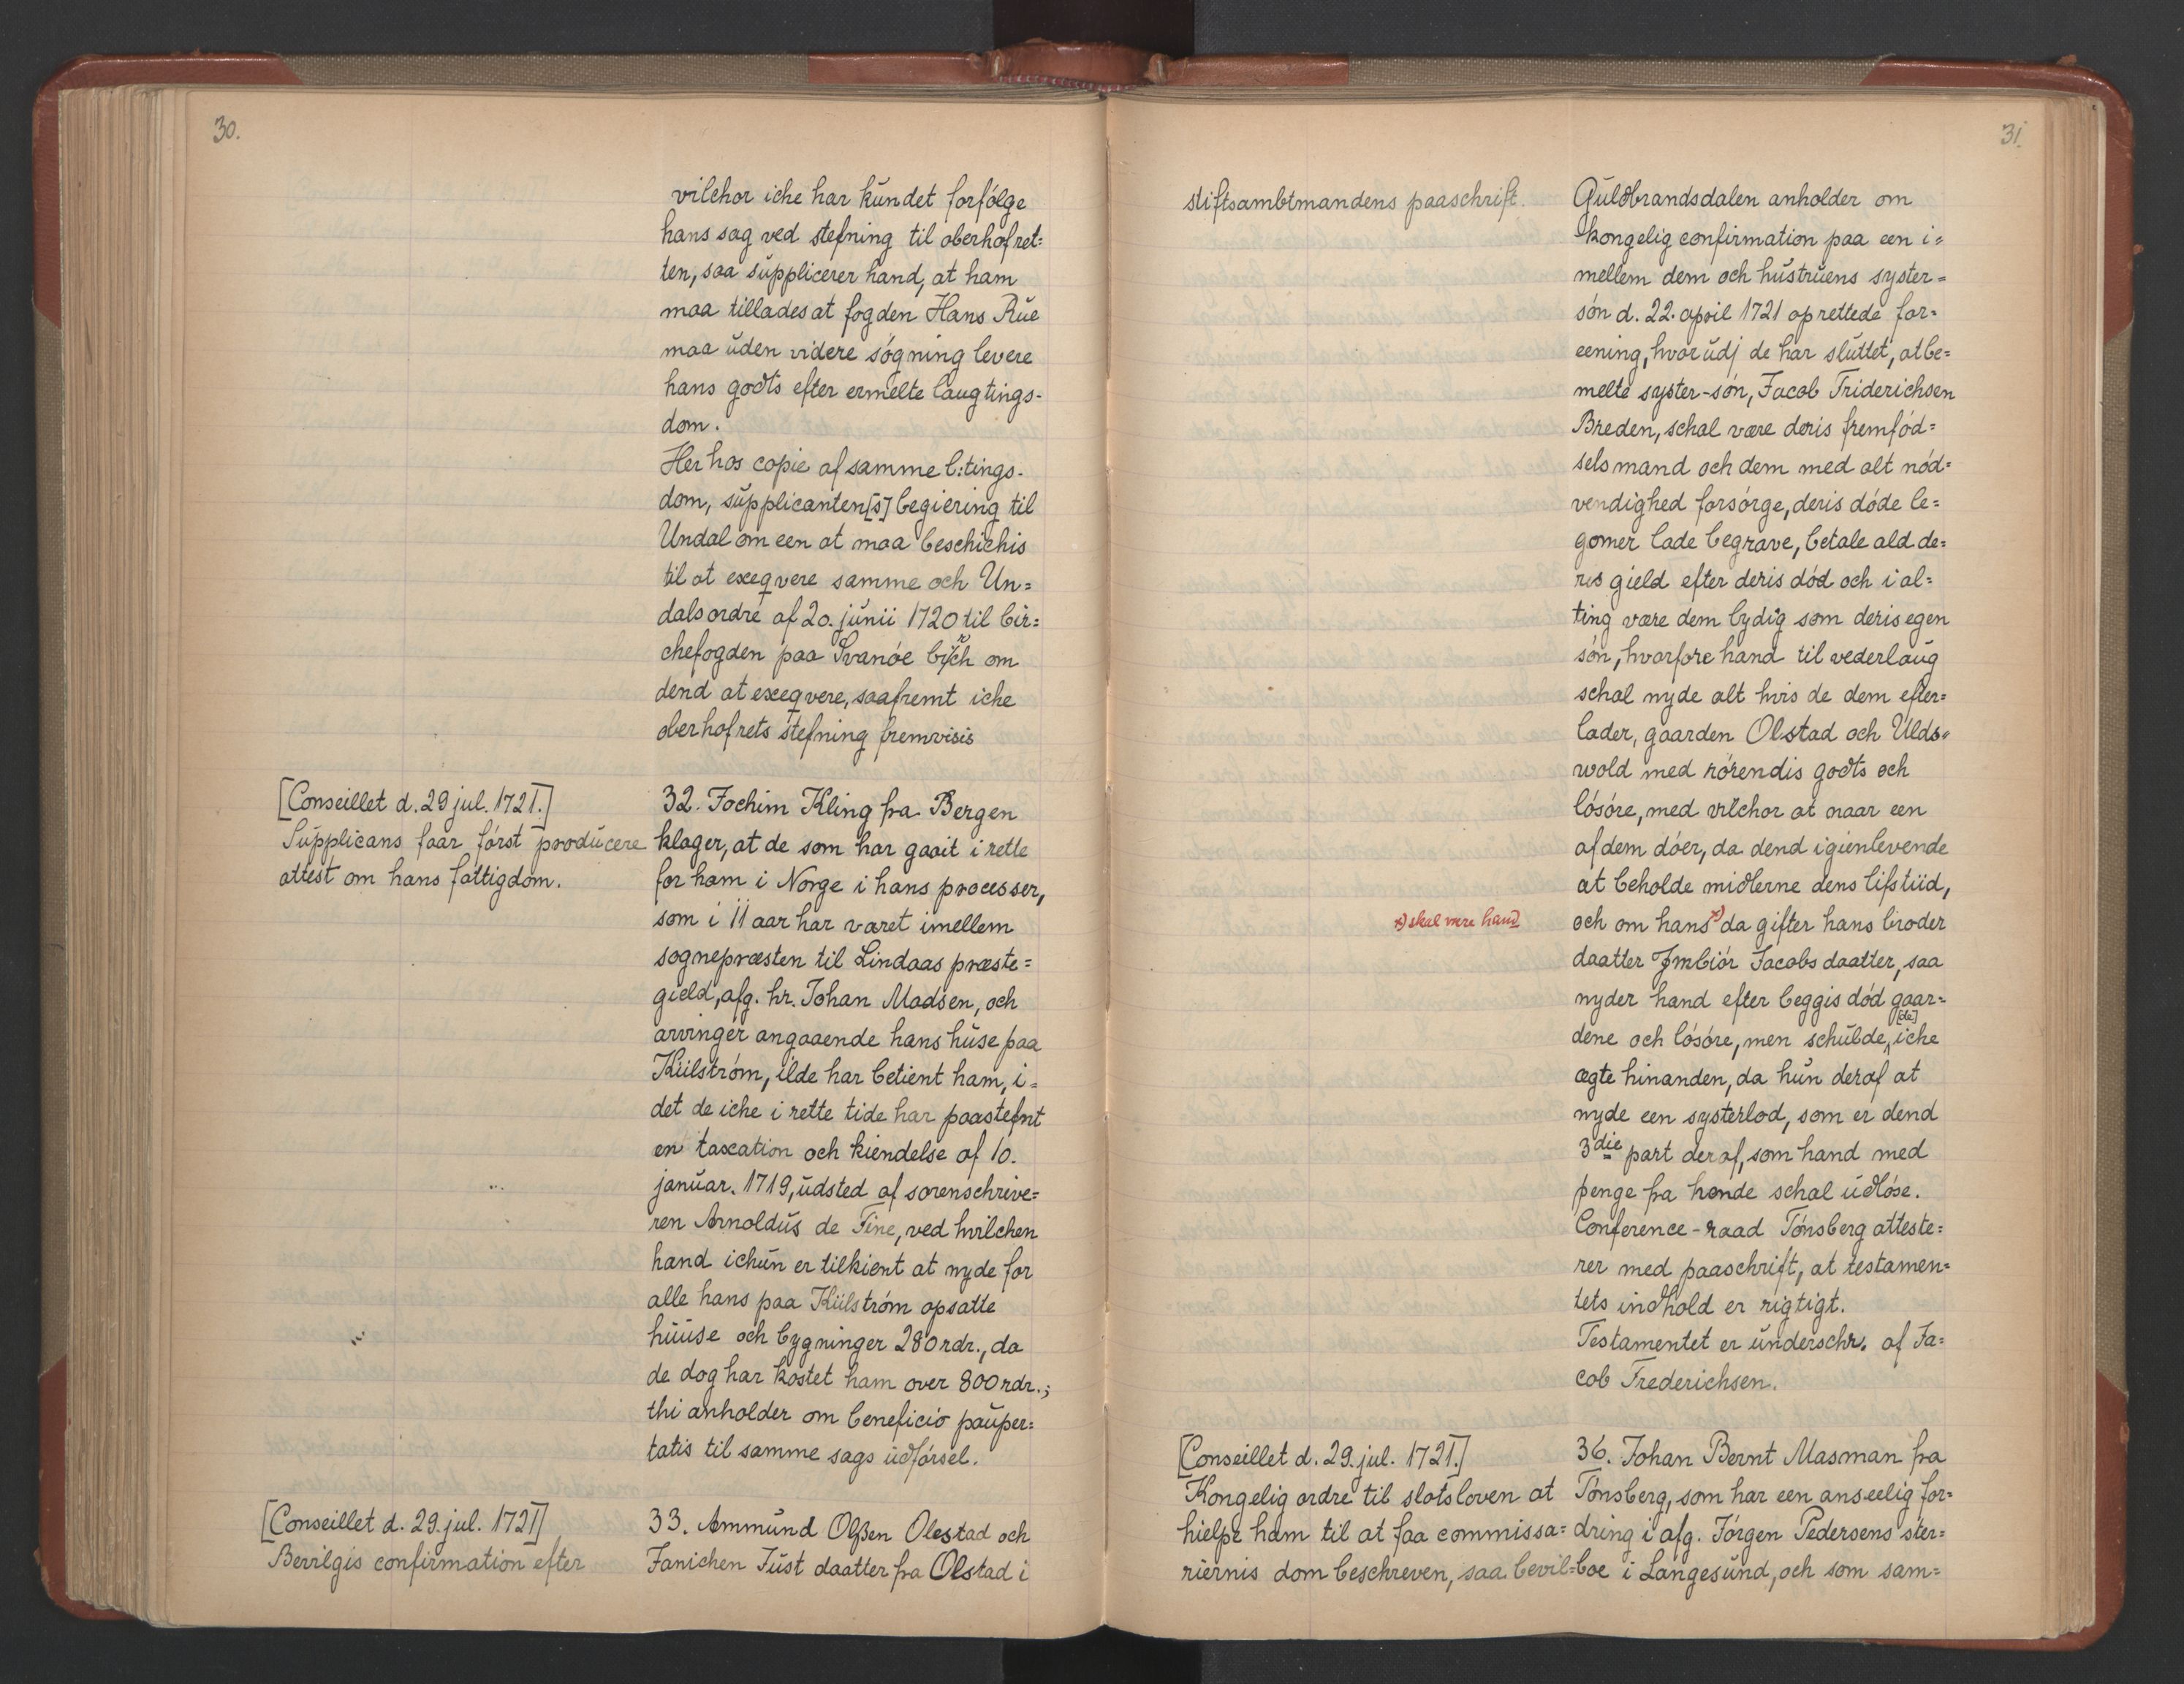 30.
vilchor iche har kundet forfólge
hans sag ved stefning til oberhofret=
ten, saa supplicerer hand, at ham
maa tillades at fogden Hans Rue
maa uden videre sógning levere
hans godts efter ermelte laugtings-
dom.
Her hos copie af samme l:tings-
dom, supplicanten[s] begiering til
Undal om een at maa beschichis
til at exeqvere samme och Un=
dals ordre af 20. junii 1720 til bir=
chefogden paa Svanóe birch om
dend at exeqvere, saafremt iche
oberhofrets stefning fremvisis
[Conseillet d. 29 jul. 1721.]
Supplicans faar fórst producere
attest om hans fattigdom.
32. Jochim Kling fra Bergen
klager, at de som har gaait i rette
for ham i Norge i hans processer,
som i 11 aar har været imellem
sognepræsten til Lindaas præste=
gield, afg. hr. Johan Madsen, och
arvinger angaaende hans huse paa
Kiilstróm, ilde har betient ham, i=
det de iche i rette tide har paastefnt
en taxation och kiendelse af 10.
januar. 1719, udsted af sorenschrive=
ren Arnoldus de Fine, ved hvilchen
hand ichun er tilkient at nyde for
alle hans paa Kiilstróm opsatte
huuse och bygninger 280 rdr., da
de dog har kostet ham over 800 rdr.;
thi anholder om beneficio pauper=
tatis til samme sags udfórsel.
[Conseillet d. 29. jul. 1721]
Bevilgis confirmation efter
33. Ammund Olßen Olestad och
Janichen Just daatter fra Olstad i
31.
stiftsambtmandens paaschrift.
Guldbrandsdalen anholder om
kongelig confirmation paa een i=
mellem dem och hustruens syster=
són d. 22. april 1721 oprettede for=
eening, hvorudj de har sluttet, at be=
melte syster-són, Jacob Friderichsen
Breden, schal være deris fremfód=
sels mand och dem med alt nód=
vendighed forsórge, deris dóde le=
gomer lade begrave, betale ald de=
ris gield efter deris dód och i al=
ting være dem lydig som deris egen
són, hvorfore hand til vederlaug
schal nyde alt hvis de dem efter=
lader, gaarden Olstad och Ulds=
wold med rórendis godts och
lósóre, med vilchor at naar een
af dem dóer, da dend igienlevende
at beholde midlerne dens lifstiid,
x) skal være hand
och om hans x) da gifter hans broder
daatter Jmbiór Jacobs daatter, saa
nyder hand efter beggis dód gaar=
dene och lósóre, men schulde [de] iche
ægte hinanden, da hun deraf at
nyde een systerlod, som er dend
3die part deraf, som hand med
penge fra hende schal udlóse.
Conference-raad Tónsberg atteste=
rer med paaschrift, at testamen=
tets indhold er rigtigt.
Testamentet er underschr. af Ja=
cob Frederichsen.
[Conseillet d. 29. jul. 1721.]
Kongelig ordre til slotsloven at
hielpe ham til at faa commissa=
riernis dom beschreven, saa bevil=
36. Johan Bernt Masman fra
Tónsberg, som har een anseelig for=
dring i afg. Jórgen Pedersens ster=
boe i Langesund, och som sam=